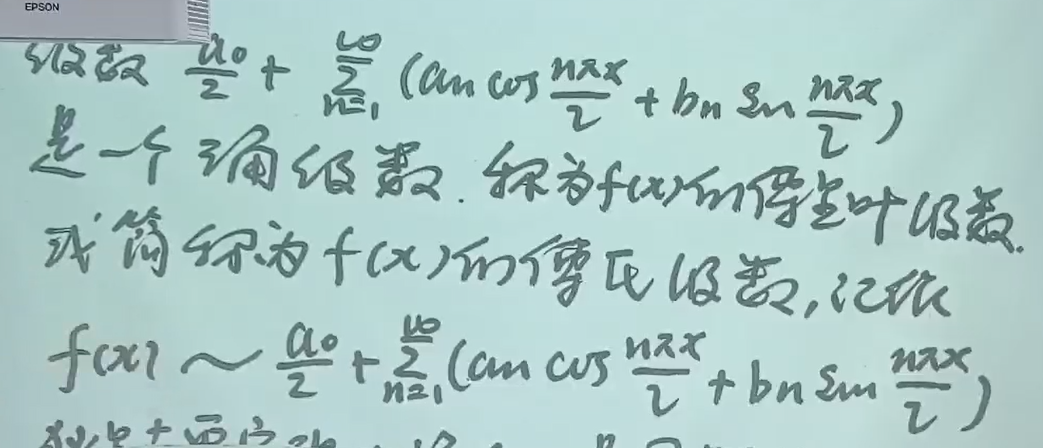 EPSON
级数 a0/2 + ∑_{n=1}^{∞} (an cos nπx/l + bn sin nπx/l)
是一个三角级数. 称为f(x)的傅里叶级数.
或简称为f(x)的傅氏级数,记作
f(x) ~ a0/2 + ∑_{n=1}^{∞} (an cos nπx/l + bn sin nπx/l)